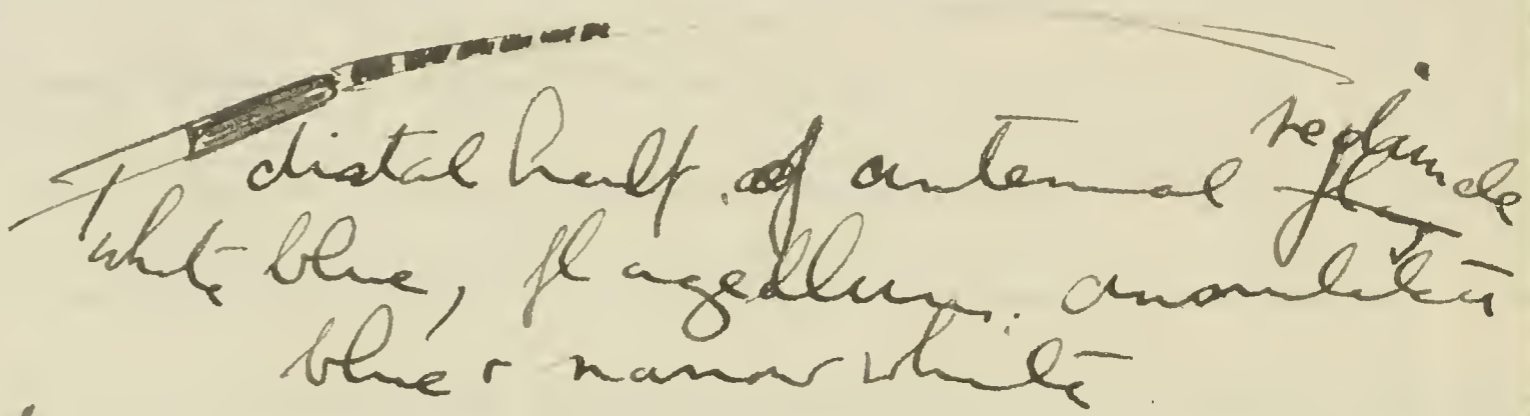 distal half of antennal peduncle
white blue, flagellum annulated
blue + narrow white